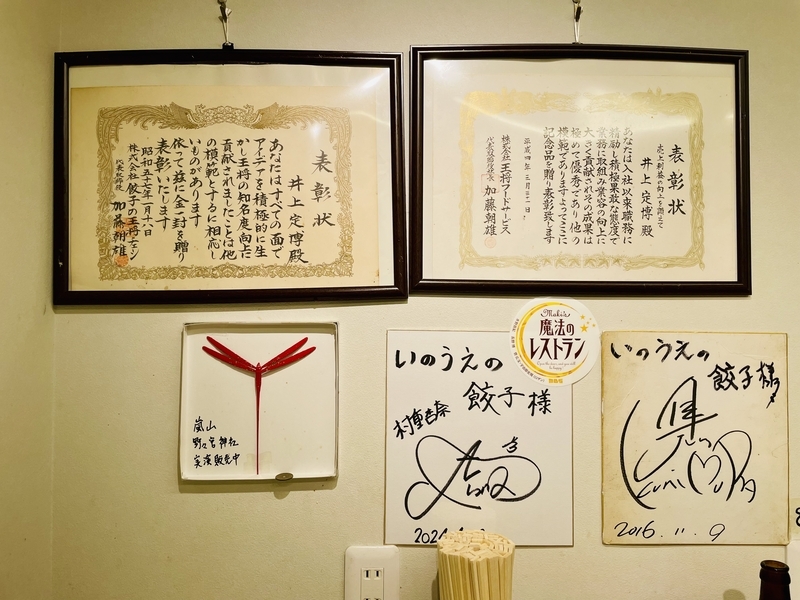 表彰状
井上定博殿
あなたはすべての面で
アイデアを積極的に生
かし王将の知名度向上に
貢献されましたことは他
の模範とするに相応し
いものがあります
依って茲に金一封を贈り
表彰いたします
昭和五十七年一月十八日
株式会社餃子の王将チェーン
代表取締役 加藤朝雄
表彰状
井上定博殿
あなたは入社以来職務に
精励し積極果敢な態度で
業務に取組み業容の向上に
大きく貢献されその成果は
極めて優秀であり他の
模範でありますよってここに
記念品を贈り表彰致します
株式会社王将フードサービス
代表取締役社長 加藤朝雄
嵐山
野々宮神社
実演販売中
Maki's
魔法の
レストラン
いのうえの
餃子様
村重杏奈
いのうえの
餃子様
2016.11.9